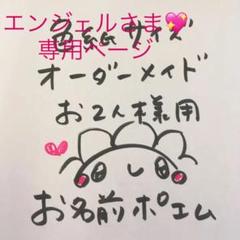 エンジェルさま💖
専用ページ
色紙サイズ
オーダーメイド
お2人様用
お名前ポエム